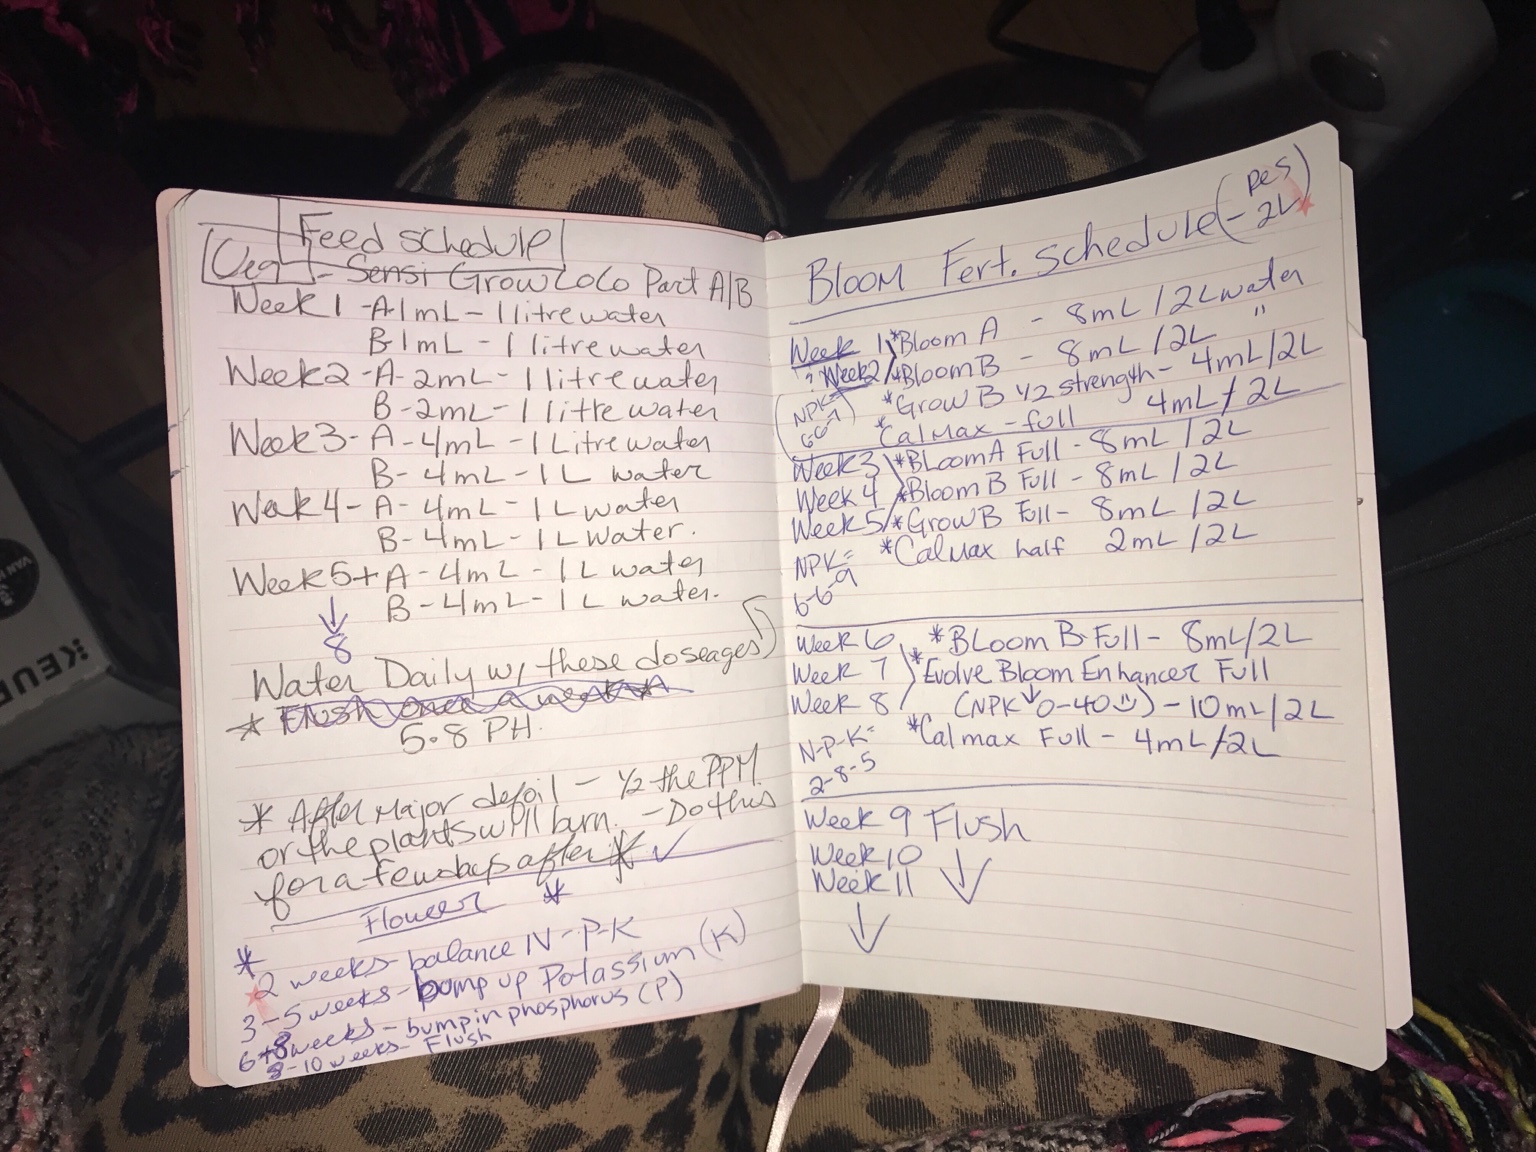 Feed Schedule
Veg - Sensi Grow Coco Part A/B
Week 1 - A-1mL - 1 litre water
B-1mL - 1 litre water
Week 2 - A-2mL - 1 litre water
B-2mL - 1 litre water
Week 3 - A-4mL - 1 Litre water
B-4mL - 1 L water
Week 4 - A-4mL - 1 L water
B-4mL - 1 L Water.
Week 5+ A-4mL - 1 L water
B-4mL - 1 L water.
8
Water Daily w/ these doseages
* Flush once a week
5.8 PH.
* After Major defoil - 1/2 the PPM
or the plants will burn. - Do this
for a few days after *
Flower *
*
2 weeks - balance N-P-K
3-5 weeks - bump up Potassium (K)
6+8 weeks - bump in phosphorus (P)
8-10 weeks - Flush
Bloom Fert. Schedule (pes - 2L)
Week 1 *Bloom A - 8mL/2L water
? Week 2 *Bloom B - 8mL/2L "
*Grow B 1/2 strength - 4mL/2L
*CalMax - full 4mL/2L
NPK=
Week 3 *Bloom A Full - 8mL/2L
Week 4 *Bloom B Full - 8mL/2L
Week 5 *Grow B Full - 8mL/2L
*Calmax half 2mL/2L
NPK=
6-6-9
Week 6 *Bloom B Full - 8mL/2L
Week 7 *Evolve Bloom Enhancer Full
Week 8 (NPK 0-40) - 10mL/2L
*Calmax Full - 4mL/2L
N-P-K=
2-8-5
Week 9 Flush
Week 10
Week 11
KEUR